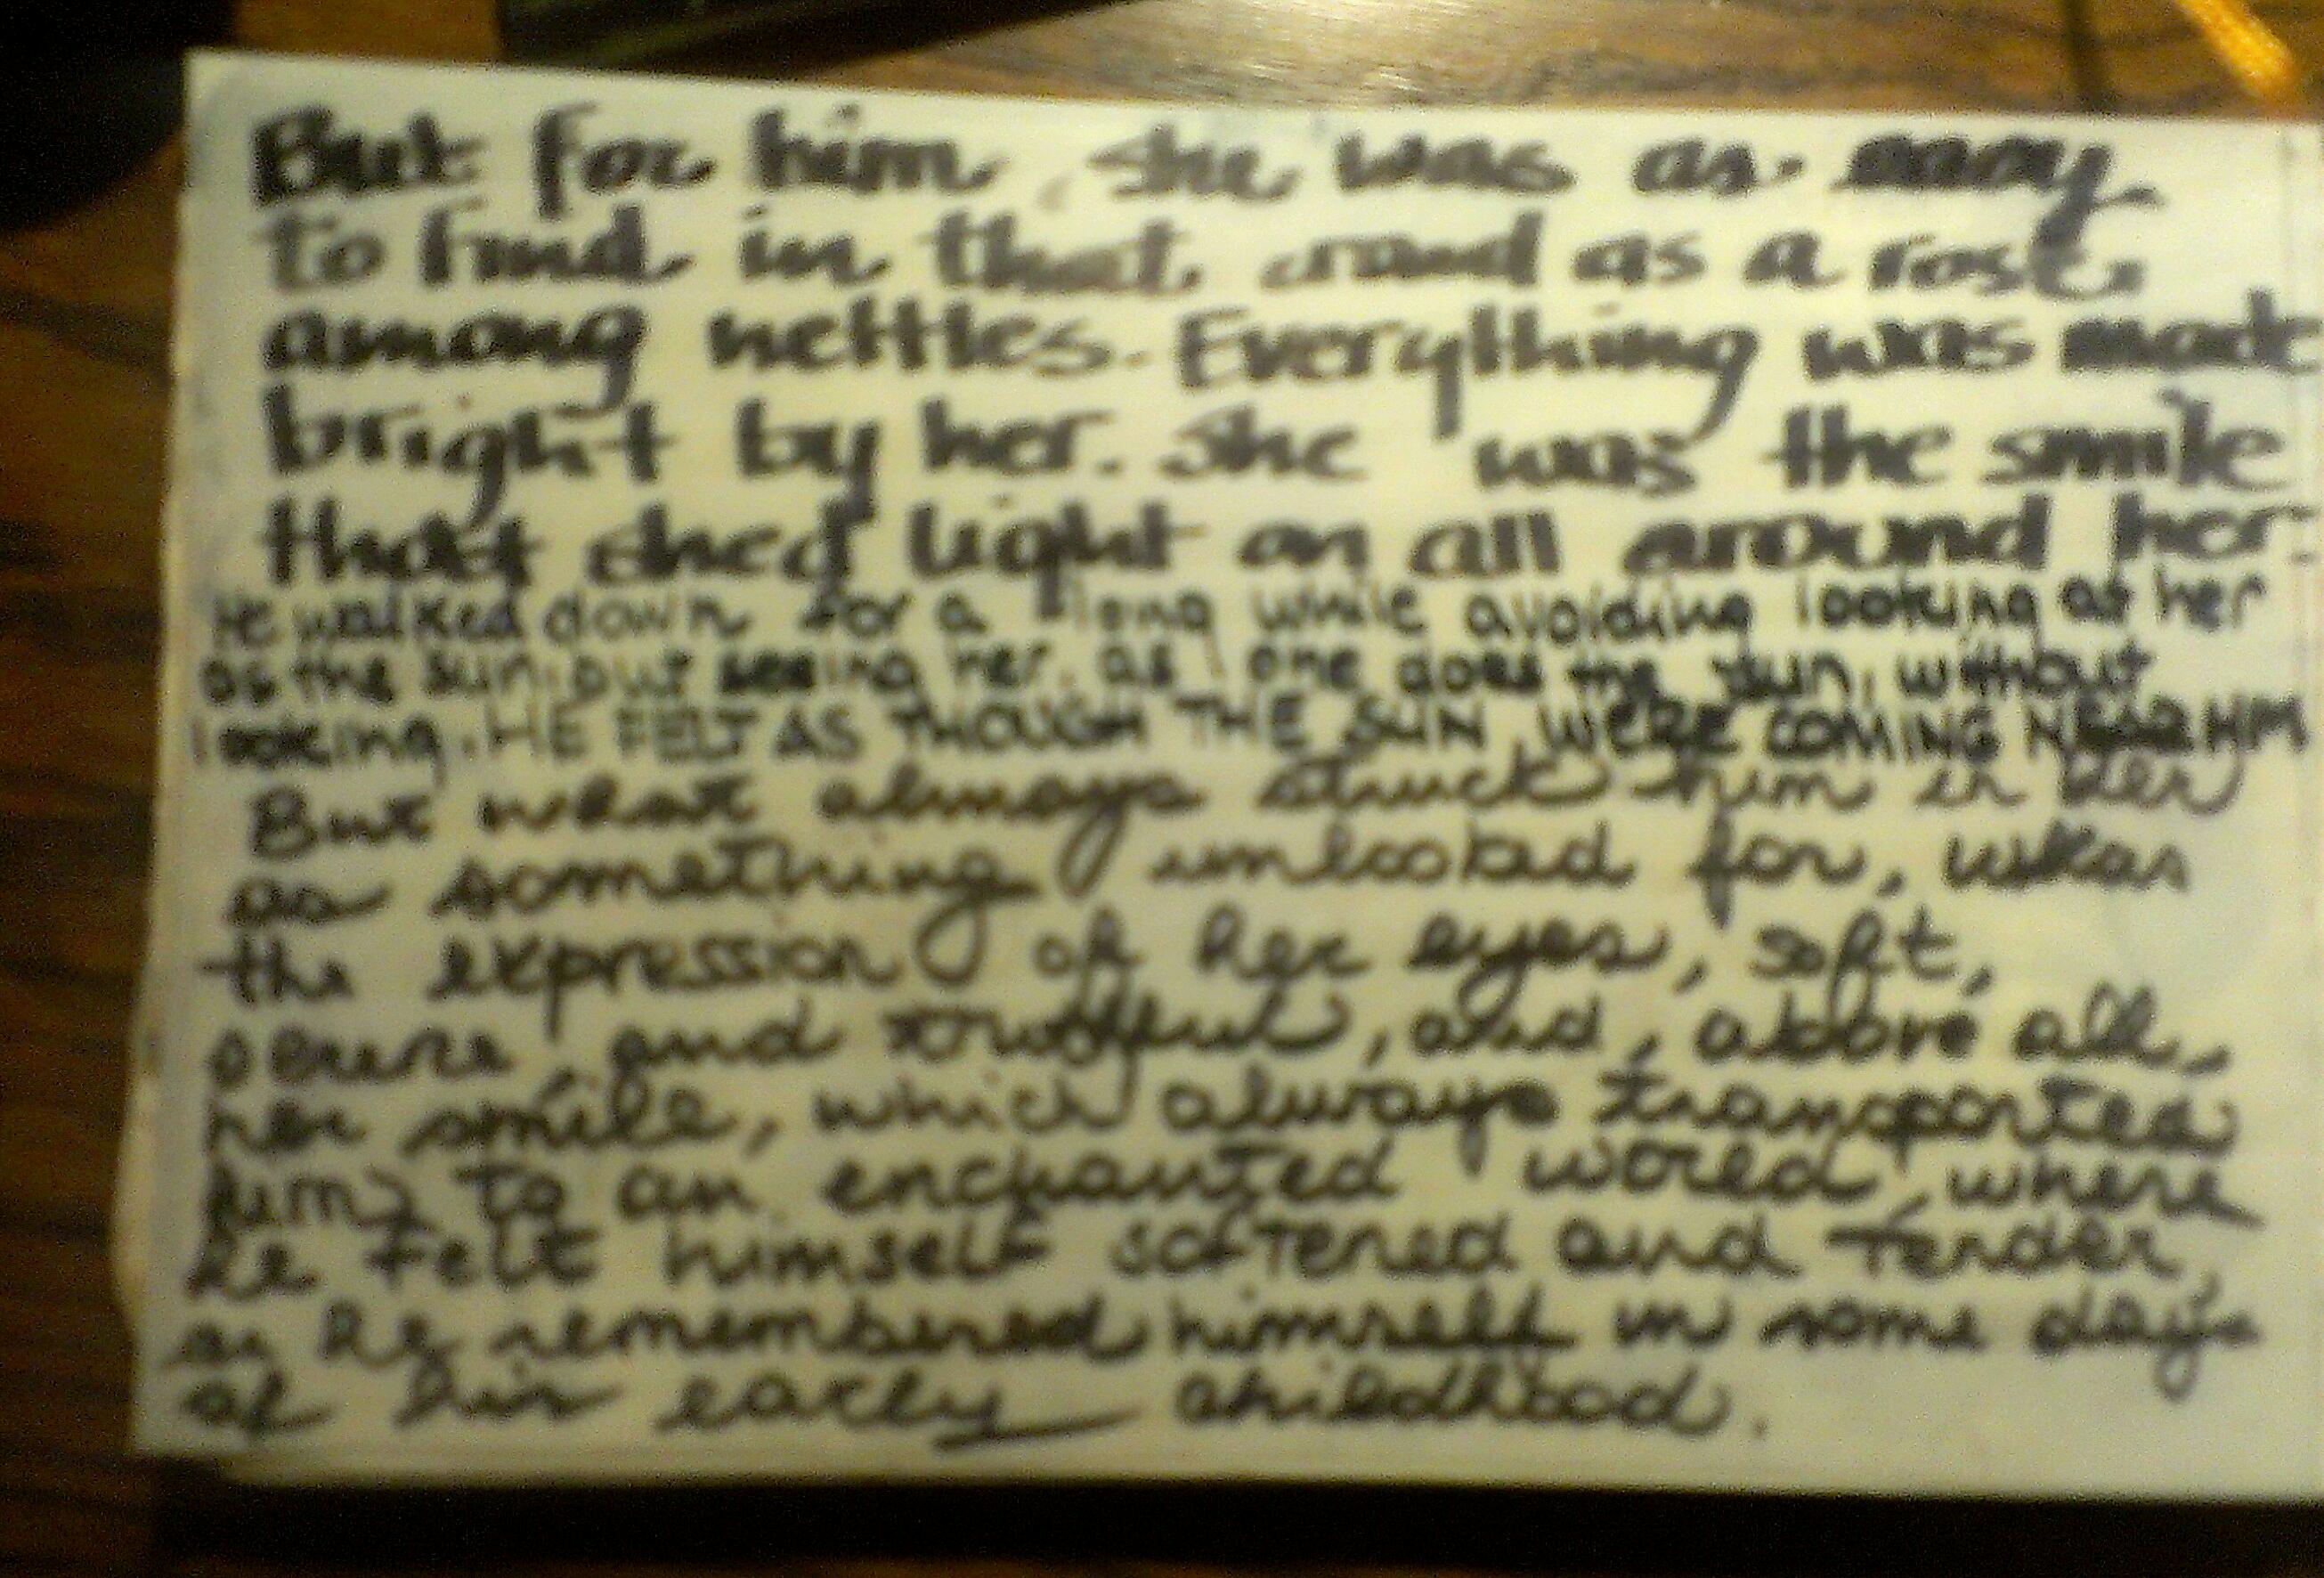 But for him, she was as easy
to find in that crowd as a rose
among nettles. Everything was made
bright by her. She was the smile
that shed light on all around her.
He walked down for a long while avoiding looking at her
as the sun, but seeing her, as one does the sun, without
looking. HE FELT AS THOUGH THE SUN WERE COMING NEAR HIM
But what always struck him in her
as something unlooked for, was
the expression of her eyes, soft,
and , and, above all,
her smile, which always transported
him to an enchanted world, where
he felt himself softened and tender,
as he remembered himself in some days
of his early childhood.